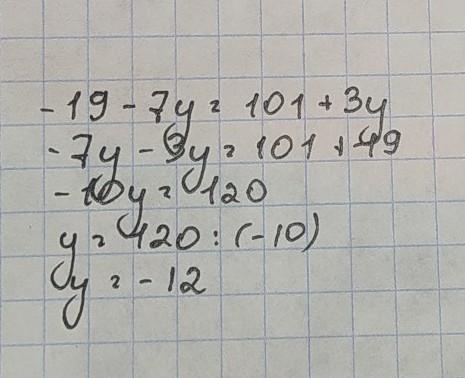 -19 - 7y = 101 + 3y
-7y - 3y = 101 + 19
-10y = 120
y = 120 : (-10)
y = -12